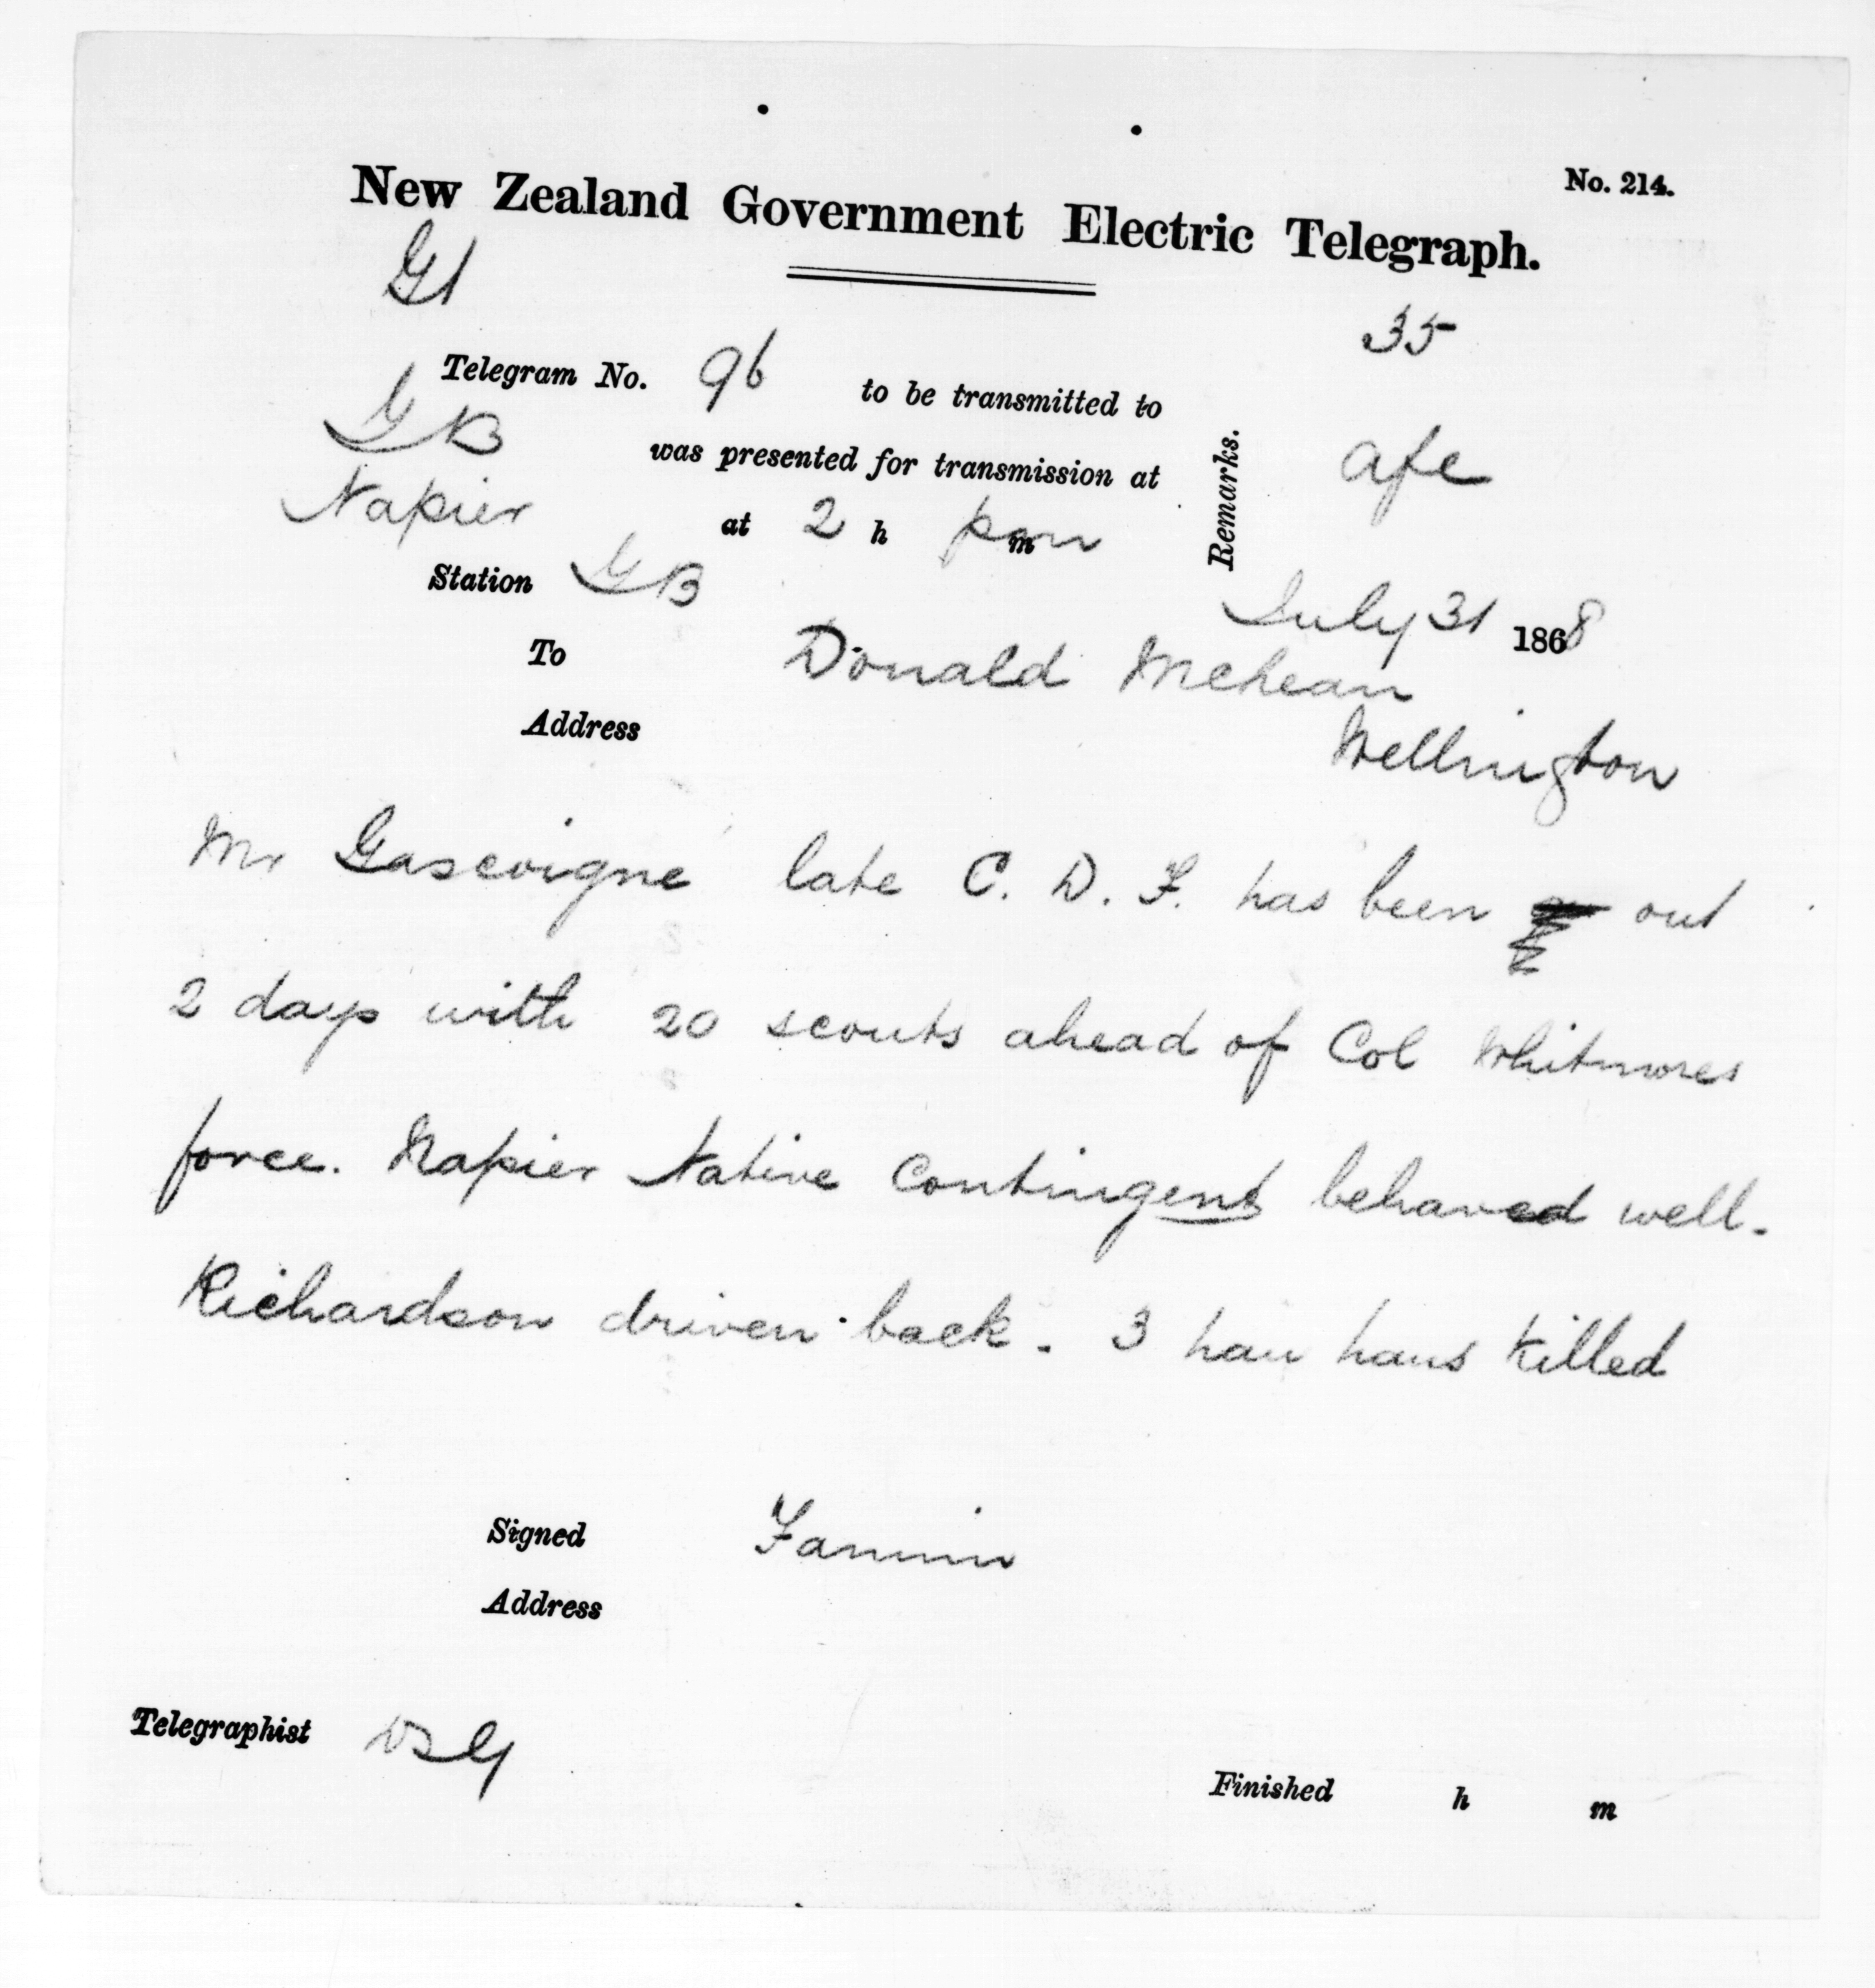 No. 214.
New Zealand Government Electric Telegraph.
35
Telegram No. 96 to be transmitted to
GB
Napier
was presented for transmission at
at 2 h pm m
Remarks.
Station GB
July 31 1868
To Donald McLean
Address Wellington
Mr Gascoigne late C. D. F. has been out
2 days with 20 scouts ahead of Col Whitmores
force. Napier Native Contingent behaved well.
Richardson driven back. 3 hau haus killed
Signed Fannin
Address
Telegraphist
Finished h m